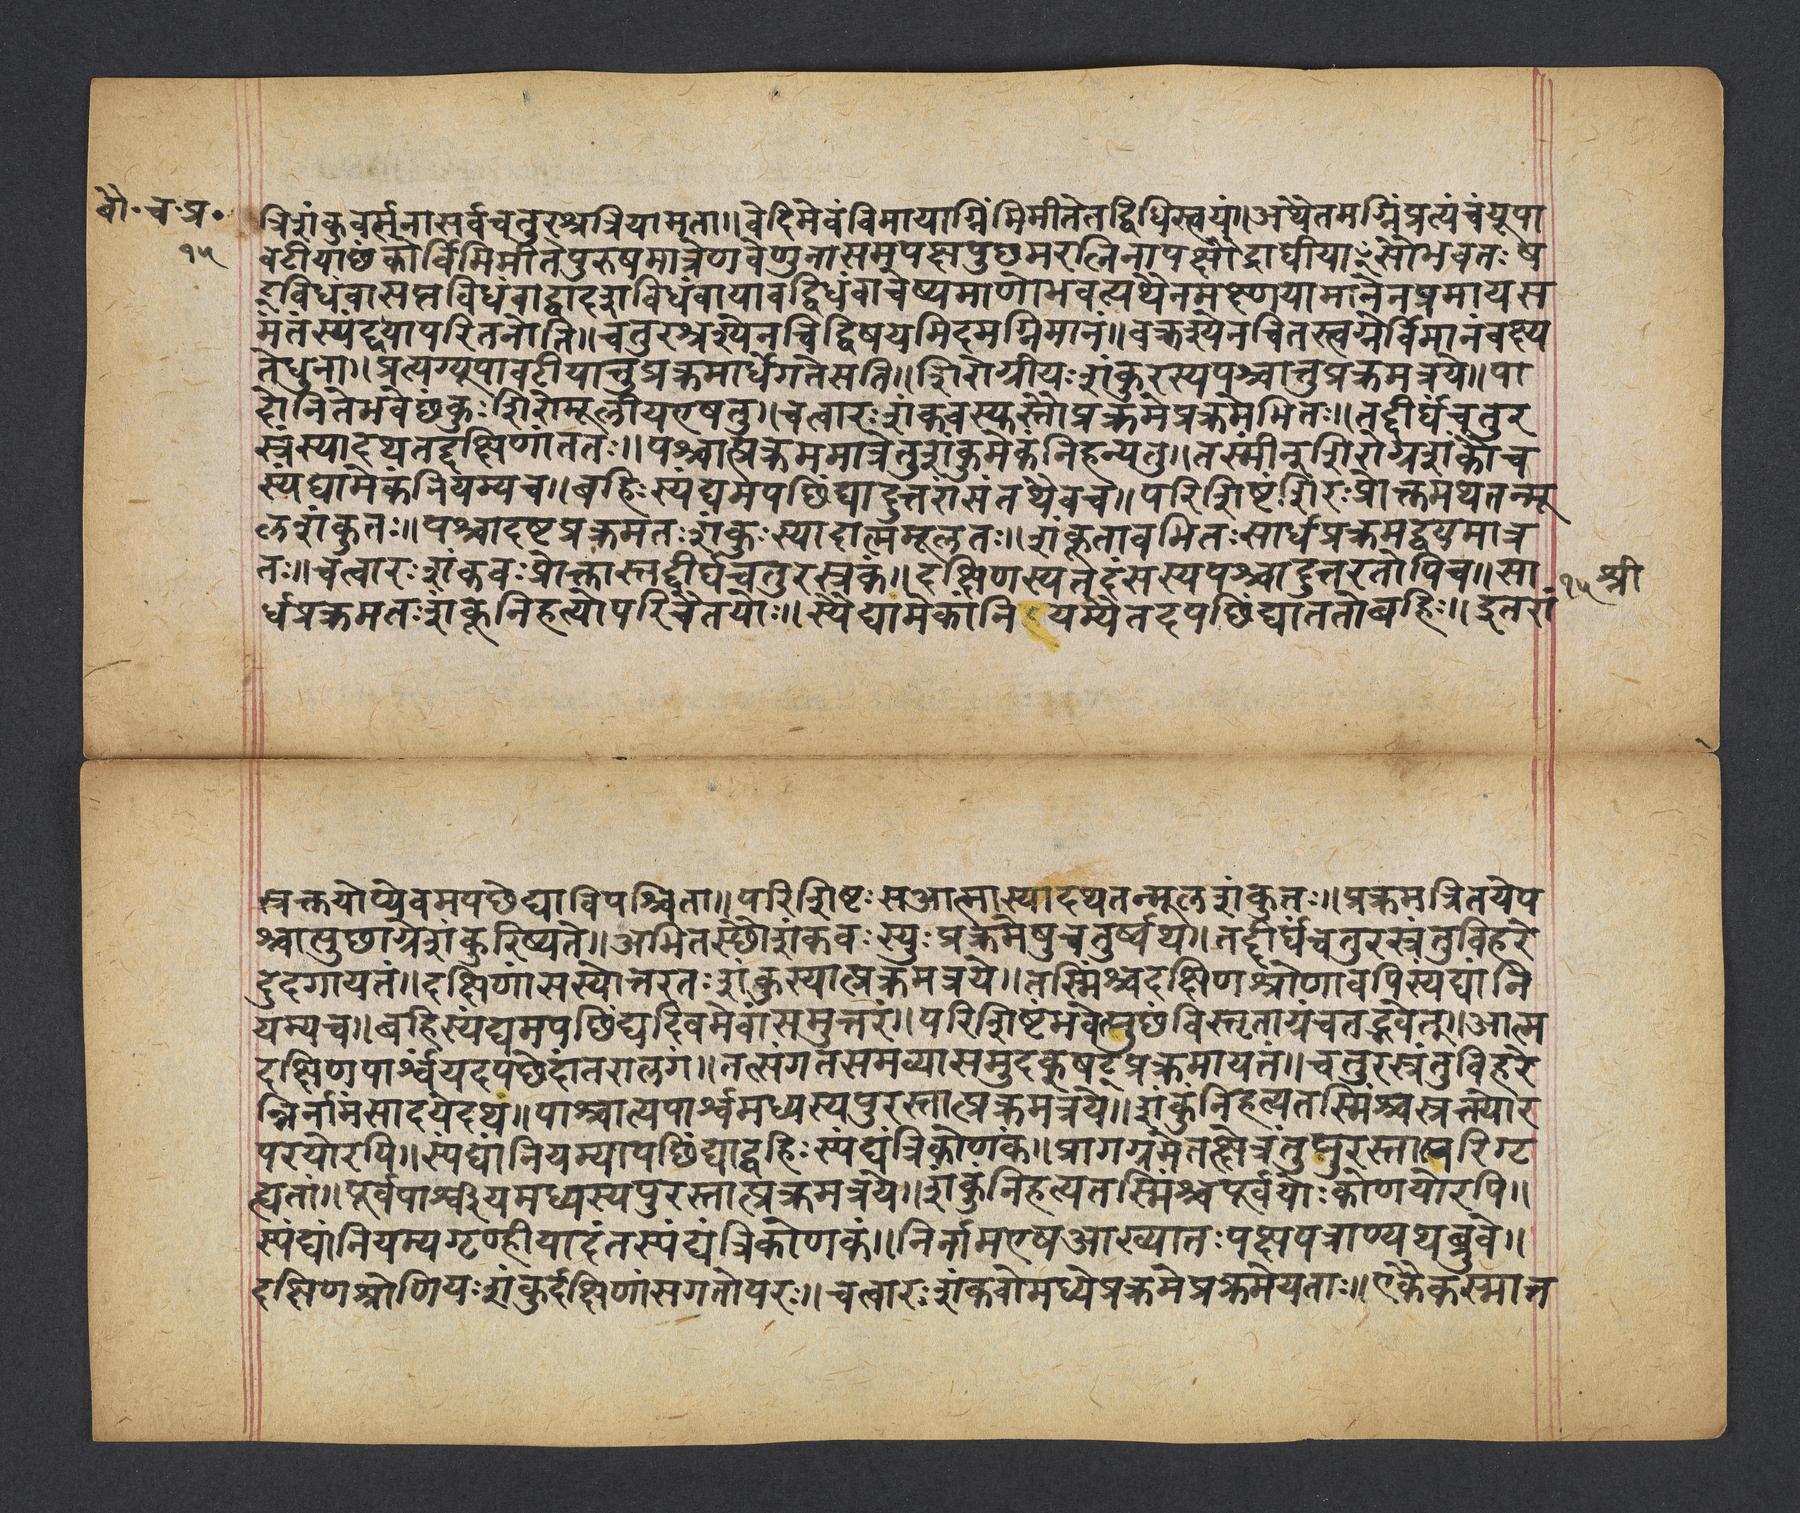 बौ॰च॰प्र॰
१५
त्रिशंकुवर्त्सनासर्वचतुरश्रत्रियामता॥वेदिमेवंविमायाग्निंमिमीतेतद्विधिस्त्वयं॥अथैतमग्निंप्रत्यंचंयूपा
वटीयाछंकोर्विमिमीतेपुरुषमात्रेणवेणुनासमुपह्वपुछमरत्निनापक्षौद्राघीयाꣳसौभवतःष
ड्विधंवासप्तविधंवाद्वादशविधंवायावद्विधंवाचेष्यमाणोभवत्यथैनमक्ष्णयामानेनप्रमायस
मंतंस्यंद्ययापरितनोति॥चतुरश्रश्येनचिद्विषयमिदमग्निमानं॥वक्रश्येनचितस्त्वग्नेर्विमानंवक्ष्य
तेधुना॥प्रत्यग्यूपावटीयात्तुप्रक्रमार्धेगतेसति॥शिरोग्रीयःशंकुरस्यपश्चात्तुप्रक्रमत्रये॥पा
दोनितेभवेछकुःशिरोमूलीयएषतु॥चत्वारःशंकवस्त्वस्तौप्रक्रमेप्रक्रमेमितः॥तद्दीर्घंचतुर
स्त्रंस्यादथतद्दक्षिणांततः॥पश्चात्प्रक्रममात्रेतुशंकुमेकंनिहन्यतु॥तस्मीन्शिरोग्रशंकौच
स्यंद्यामेकंनियम्यच॥बहिःस्यंद्यमपछिंद्यादुत्तरांसंतथैवच॥परिशिष्टंशिरःप्रोक्तमथतन्मू
लशंकुतः॥पश्चादष्टप्रक्रमतःशंकुःस्यादात्ममूलतः॥शंकूतावमितःसार्धप्रक्रमद्वयमात्र
तः॥चत्वारःशंकवःप्रोक्तास्तद्दीर्घचतुरस्त्रकं॥दक्षिणस्यतदंसस्यपश्चादुत्तरतोपिच॥सा
र्धप्रक्रमतःशंकूनिहत्योपरिचेतयोः॥स्यंद्यामेकांनियम्यैतदपछिंद्यात्ततोबहिः॥दुत्तरां
१५ श्री
स्त्रक्तयोप्येवमपछेद्याविपश्चिता॥परिशिष्टःसआत्मास्यादथतन्मूलशंकुतः॥प्रक्रमत्रितयेप
श्चात्पुछाग्रेशंकुरिष्यते॥अमितस्छौशंकवःस्युःप्रक्रमेषुचतुर्ष्वथ॥तद्दीर्घंचतुरस्त्रंतुविहरे
दुदगायतं॥दक्षिणांसस्योत्तरतःशंकुस्यात्प्रक्रमत्रये॥तस्मिंश्चदक्षिणश्रोणावपिस्यद्यांनि
यम्यच॥बहिस्यंद्यमपछिंद्यदिवमेवांसमुत्तरं॥परिशिष्टंभवेत्पुछंविस्तृतायंचतद्भवेत्॥आत्म
दक्षिणपार्श्वेयदपछेदांतरालगं॥तत्संगतसमव्यासमुदक्षट्प्रक्रमायतं॥चतुरस्त्रंतुविहरे
न्निर्नामंसादयेदथ॥पाश्चात्यपार्श्वमध्यस्यपुरस्तात्प्रक्रमत्रये॥शंकुंनिहत्यतस्मिंश्चस्त्रक्तयोर
परयोरपि॥स्पंद्यांनियम्यापछिंद्याद्बहिःस्पंद्यंत्रिकोणकं॥प्रागग्रमेतत्क्षेत्रंतुपुरस्तात्परिगृ
ह्यतां॥पूर्वपार्श्वीयमध्यस्यपुरस्तात्प्रक्रमत्रये॥शंकुंनिहत्यतस्मिंश्चपूर्वयोःकोणयोरपि॥
स्पंद्यांनियम्यगृण्हीयादंतस्पंद्यंत्रिकोणकं॥निर्नामएषआख्यातःपक्षपत्राण्यथब्रुवे॥
दक्षिणश्रोणियःशंकुर्दक्षिणांसगतोपरः॥चत्वारःशंकवोमध्येप्रक्रमेप्रक्रमेयताः॥एकैकस्मात्त